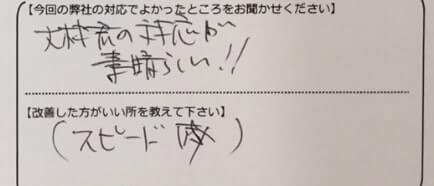 【今回の弊社の対応でよかったところをお聞かせください】
の対応が
素晴らしい!!
【改善した方がいい所を教えて下さい】
(スピード )